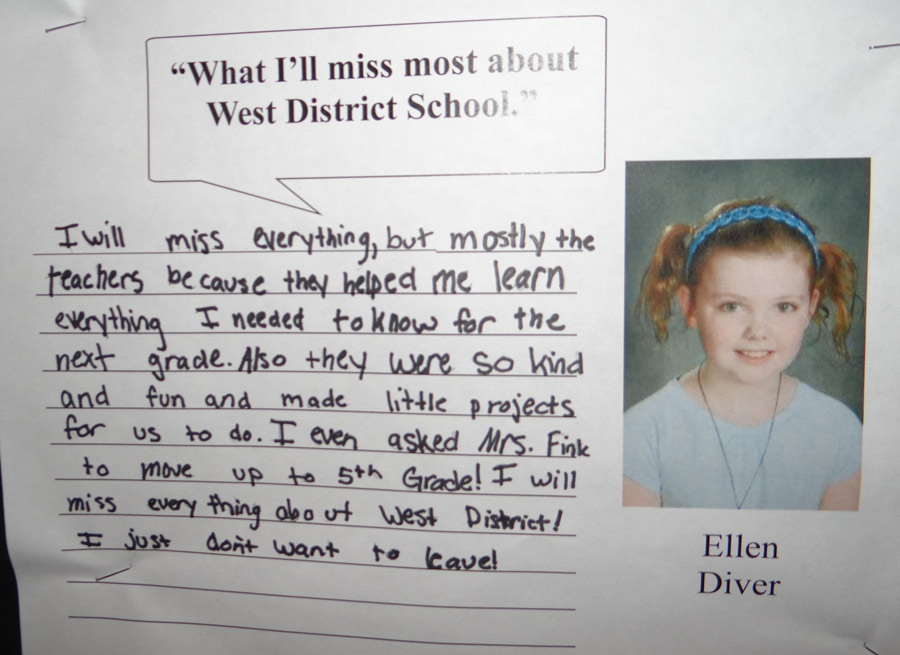 “What I’ll miss most about
West District School.”
I will miss everything, but mostly the
teachers because they helped me learn
everything I needed to know for the
next grade. Also they were so kind
and fun and made little projects
for us to do. I even asked Mrs. Fink
to move up to 5th Grade! I will
miss every thing about West District!
I just don't want to leave!
Ellen
Diver